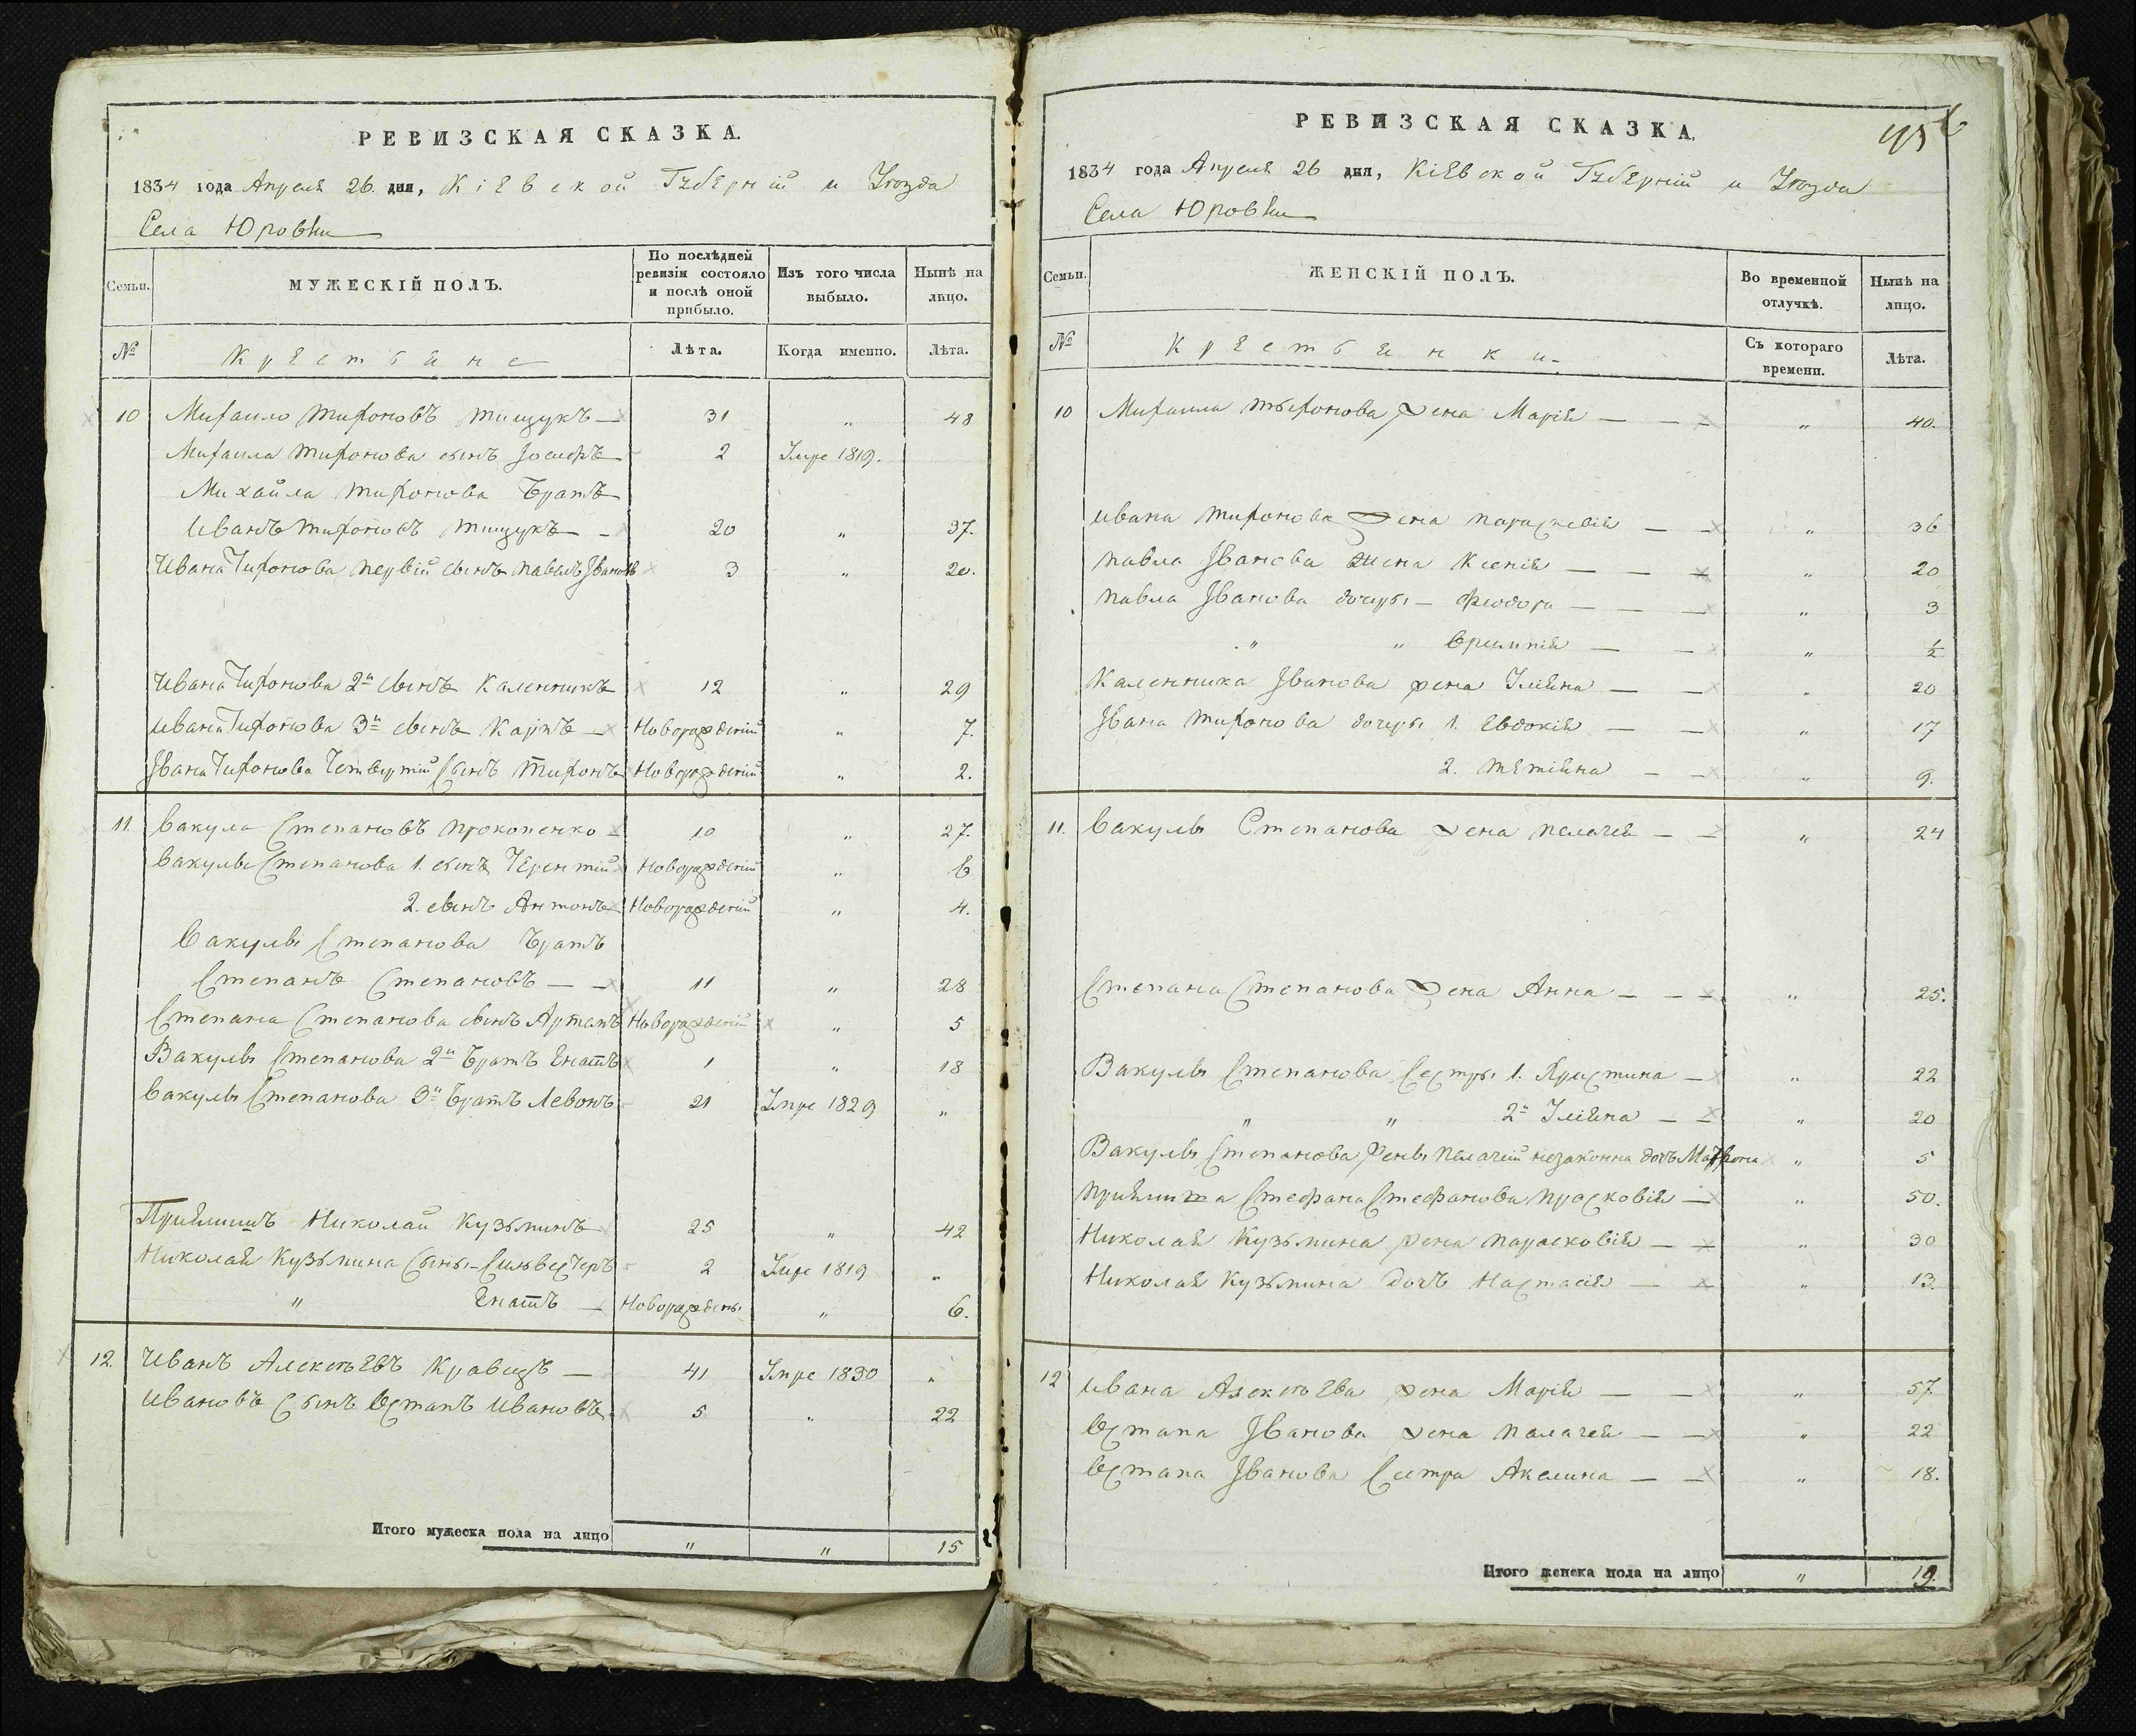 РЕВИЗСКАЯ СКАЗКА.
1834 года Апреля 26 дня, Кіевской Губерній и Уѣзда
Села Юровки
Семьи.
МУЖЕСКІЙ ПОЛЪ.
По послѣдней ревизіи состояло и послѣ оной прибыло.
Изъ того числа выбыло.
Нынѣ на лицо.
№
Крестьяне
Лѣта.
Когда именно.
Лѣта.
10 Михаило Тихоновъ Тищукъ — 31 „ 48
Михаила Тихонова сынъ Іосифъ 2 Умре 1819.
Михайла Тихонова братъ
Иванъ Тихоновъ Тищукъ — 20 „ 37.
Ивана Тихонова первій сынъ Павелъ Івановъ 3 „ 20.
Ивана Тихонова 2й сынъ Каленникъ 12 „ 29
Ивана Тихонова 3й сынъ Карпъ — Новорожденій „ 7.
Івана Тихонова Четвертій сынъ Тихонъ Новорожденій „ 2.
11. Вакула Степановъ Прокопенко 10 „ 27.
Вакулы Степанова 1. сынъ Терентій Новорожденій „ 6
2. сынъ Антонъ Новорожденій „ 4.
Вакулы Степанова братъ
Степанъ Степановъ — — 11 „ 28
Степана Степанова сынъ Артемъ Новорожденій „ 5
Вакулы Степанова 2й братъ Игнатъ 1 „ 18
Вакулы Степанова 3й братъ Левонъ 21 Умре 1829 „
Пріймишъ Николай Кузьминъ 25 „ 42
Николая Кузьмина сыны — Сильвестеръ 2 Умре 1819 „
„ Игнатъ — Новорожденъ „ 6.
12. Иванъ Алексѣевъ Кравецъ — 41 Умре 1830 „
Ивановъ Сынъ Остапъ Ивановъ 5 „ 22
Итого мужеска пола на лицо „ „ 15
РЕВИЗСКАЯ СКАЗКА.
1834 года Апреля 26 дня, Кіевской Губерній и Уѣзда
Села Юровки
Семьи.
ЖЕНСКІЙ ПОЛЪ.
Во временной отлучкѣ.
Нынѣ на лицо.
№
Крестьянки.
Съ котораго времени.
Лѣта.
10 Михаила Тихонова жена Марія — — „ 40.
Ивана Тихонова жена Параскевія — — „ 36
Павла Іванова жена Ксенія — — — „ 20
Павла Іванова дочери — Феодора — — — „ 3
„ „ Ефимія — — „ ½
Каленника Іванова жена Уліяна — — „ 20
Івана Тихонова дочери 1. Евдокія — — „ 17
2. Тетіяна — — „ 9.
11. Вакулы Степанова жена Пелагея — — „ 24
Степана Степанова жена Анна — — — „ 25.
Вакулы Степанова Сестры 1. Христина — „ 22
„ „ 2я Уліяна — — „ 20
Вакулы Степанова жены Пелагеи незаконна дочъ Матрона „ 5
Пріймиша Стефана Стефанова Просковія — „ 50.
Николая Кузьмина жена Парасковія — — „ 30
Николая Кузьмина дочъ Настасія — — „ 13.
12 Ивана Алексѣева жена Марія — — „ 57.
Остапа Іванова жена Палагея — — „ 22
Остапа Іванова Сестра Акелина — — „ 18.
Итого женска пола на лицо „ 19.